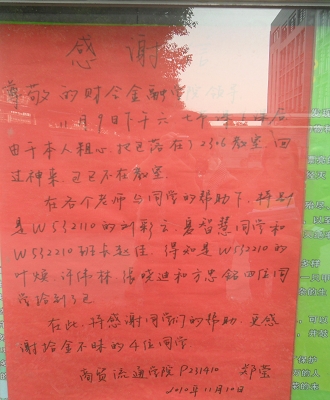 感谢
尊敬的财会金融学院
11月9日下午六 七节课后
由于本人粗心，把包落在了2306教室，回
过神来，包已不在教室
在各个老师与同学的帮助下，特别
是W532110的刘彩云、智慧同学和
W532210班长赵佳，得知是W532110的
叶 许伟林 张晓迪和方忠四位同
学捡到了包
在此，特感谢同学们的帮助，更感
谢拾金不昧的4位同学
商贸流通学院 P231410 郑莹
2010年11月10日